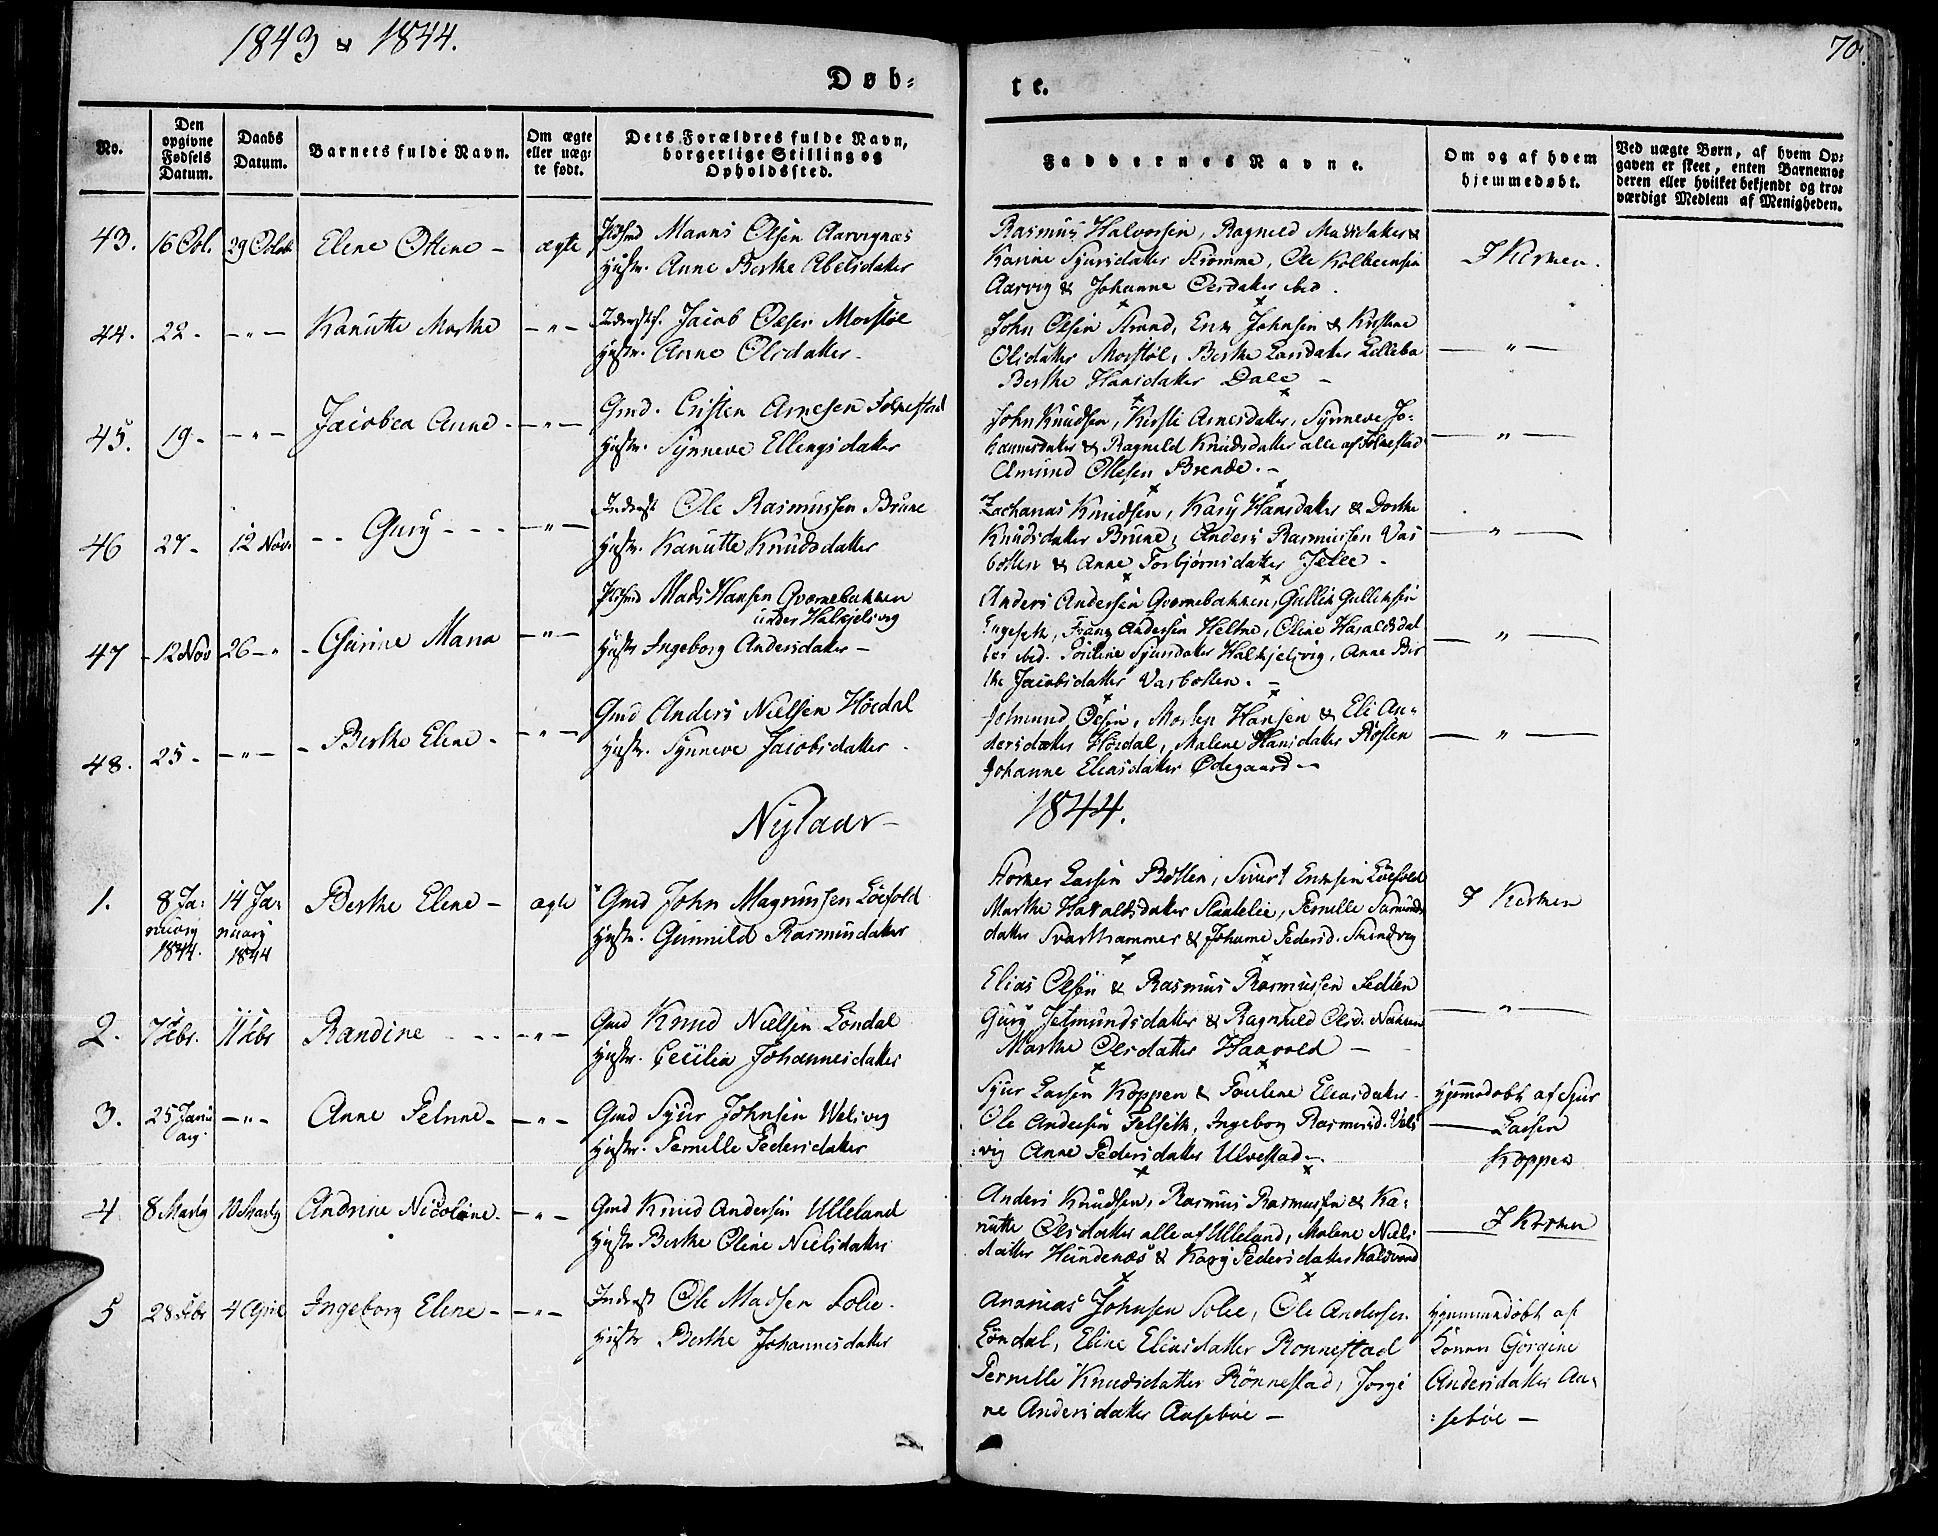 1843 & 1844.
70.
Døb-
te.
No.
Den opgivne Fødsels Datum.
Daabs Datum.
Barnets fulde Navn.
Om ægte eller uægte født.
Dets Forældres fulde Navn, borgerlige Stilling og Opholdssted.
Faddernes Navne.
Om og af hvem hjemmedøbt.
Ved uægte Børn, af hvem Opgaven er skeet, enten Barnemoderen eller hvilket bekjendt og troværdigt Medlem af Menigheden.
43. 16 Oct. 29 Octob Elene Oline - ægte
Manns Olsen Aarvignæs
Hustr. Anne Berthe Abelsdatter
Rasmus Halvorsen, Ragnild Madsdatter &
Karine Sjursdatter Strømme, Ole Kolbeensen
Aarvig & Johanne Olsdatter ibid.
I Kirken.
44. 22 - - " - Kanutte Marthe - " -
Jacob Olsen Morstøl
Hustr. Anne Olsdatter -
John Olsen Strand, Erik Johnsen & Kirstene
Olsdatter Morstøl, Berthe Larsdatter Lillebø
Berthe Hansdatter Dale -
- " -
45. 19 - - " - Jacobea Anne - - " -
Gmd. Cristen Arnesen Folkestad
Hustr. Synneve Ellingsdatter
John Knudsen, Kirsti Arnesdatter, Synneve Jo-
hannesdatter & Ragnild Knudsdatter alle af Folkestad
Amund Olsen Brende. -
- " -
46 27 - 12 Nov. - - Gury - - - - " -
Inderst Ole Rasmussen Brune
Hustr. Kanutte Knudsdatter
Zacharias Knudsen, Kary Hansdatter & Dorthe
Knudsdatter Brune, Anders Rasmussen Vas
botten & Anne Torbjørnsdatter Jelle -
- " -
47 - 12 Nov 26 - " - Gurine Maria - " -
Mads Hansen Qvernebakken
under Halkjelsvig
Hustr Ingeborg Andersdatter -
Anders Andersen Qvernebakken, Gullik Gulliksen
Engeseth, Frans Andersen Heltne, Oline Haraldsdat
ter ibid. Pouline Sjursdatter Halkjelsvig, Anne Ber
the Jacobsdatter Vasbotten. -
- " -
48. 25 - - " - - Berthe Elene - - " -
Gmd Anders Nielsen Høidal
Hustr. Synneve Jacobsdatter -
Jetmund Olsen, Morten Hansen & Eli An-
dersdatter Høidal, Malene Hansdatter Rosten
Johanne Eliasdatter Ødegaard -
- " -
Nytaar -
1844.
1. 8 Januarij 1844. 14 Januarij 1844 Berthe Elene - ægte
Gmd John Magnussen Løefold
Hustr. Gunnild Rasmusdatter
Larsen Botten, Siurt Eriksen Løefold
Marthe Haraldsdatter Slettelie, Pernille Samunds
datter Svarthammer & Johanne Pedersd. Strindvig
I Kirken
2. 7 Febr. 11 Febr Randine - - - - " -
Gmd Knud Nielsen Løndal
Hustr. Cecilia Johannesdatter
Elias Olsen & Rasmus Rasmussen Sedlen
Gury Jetmundsdatter & Ragnhild Olsd.
Marthe Olsdatter Haavold -
- " -
3. 25 Januarij. - " - Anne Petrine - - " -
Gmd Sjur Johnsen Welsvig
Hustr. Pernille Pedersdatter
Sjur Larsen Koppen & Pauline Eliasdatter -
Ole Andersen Felseth, Ingeborg Rasmusd. Vels
vig Anne Pedersdatter Ulvestad -
Hjemmedøbt af Sjur
Larsen
Koppen
4 8 Martij 10 Martij Andrine Nicoline - - " -
Gmd Knud Andersen Ulleland
Hustr Berthe Oline Nielsdatter
Anders Knudsen, Rasmus Rasmussen & Ka-
nutte Olsdatter alle af Ulleland, Malene Niels
datter Hundenæs & Kary Pedersdatter Kaldvand
I Kirken
5 28 Febr 4 April Ingeborg Elene - - " -
Inderst Ole Madsen Solie -
Hustr Berthe Johannesdatter
Ananias Johnsen Solie, Ole Andersen
Løndal, Eline Eliasdatter Rønnestad
Pernille Knudsdatter Rønnestad, Jorgi
ne Andersdatter Aasebøe -
Hjemmedøbt af
Konen Gorgine
Andersdatter Aa-
sebøe -